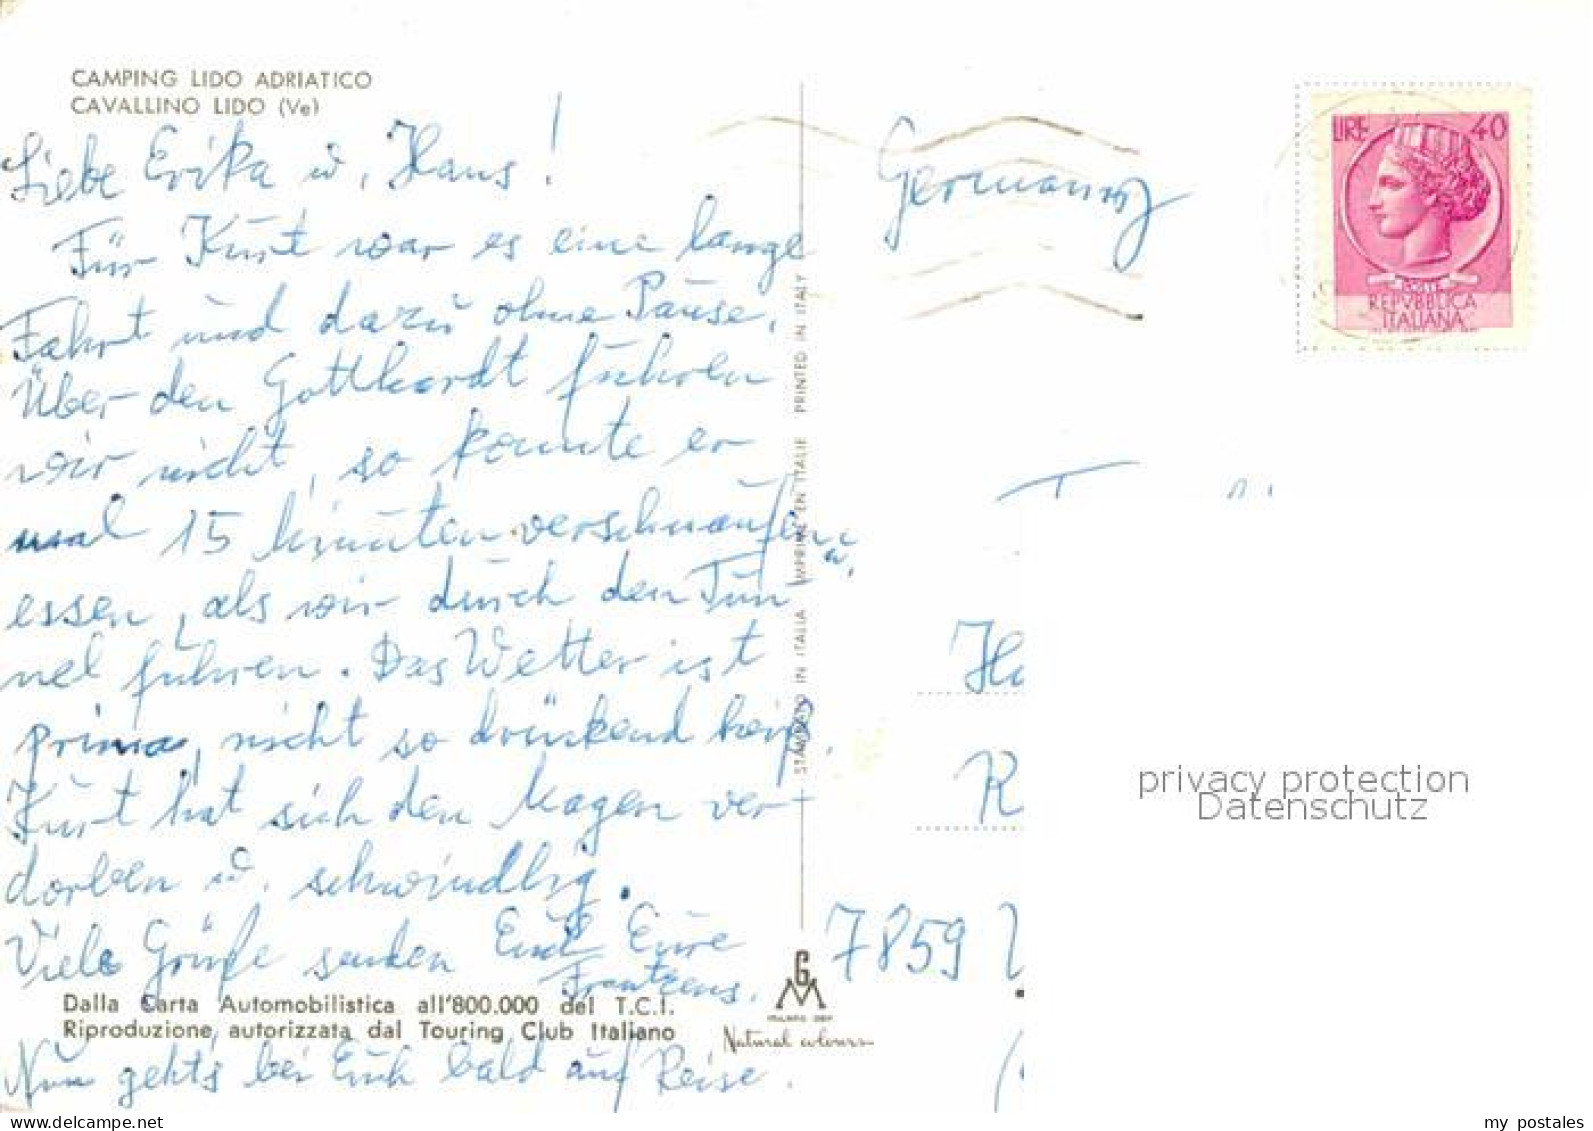 CAMPING LIDO ADRIATICO
CAVALLINO LIDO (Ve)
Liebe Erika u. Hans!
Für Kurt war es eine lange
Fahrt und dazu ohne Pause.
Über den Gotthardt fuhren
wir nicht, so konnte er
mal 15 Minuten verschnaufen u.
essen, als wir durch den Tun
nel fuhren. Das Wetter ist
prima, nicht so drückend heiß.
Kurt hat sich den Magen ver-
dorben u. schwindlig.
Viele Grüße senden Euch Eure
Frantzens.
Dalla Carta Automobilistica all'800.000 del T.C.I.
Riproduzione autorizzata dal Touring Club Italiano
Nun geht's bei Euch bald auf Reise.
STAMPATO IN ITALIA IMPRIMÉ EN ITALIE PRINTED IN ITALY
GM
MILANO
Natural colours
Germany
LIRE 40
POSTA
REPVBBLICA
ITALIANA
Ha
R
7859
privacy protection
Datenschutz
my postales